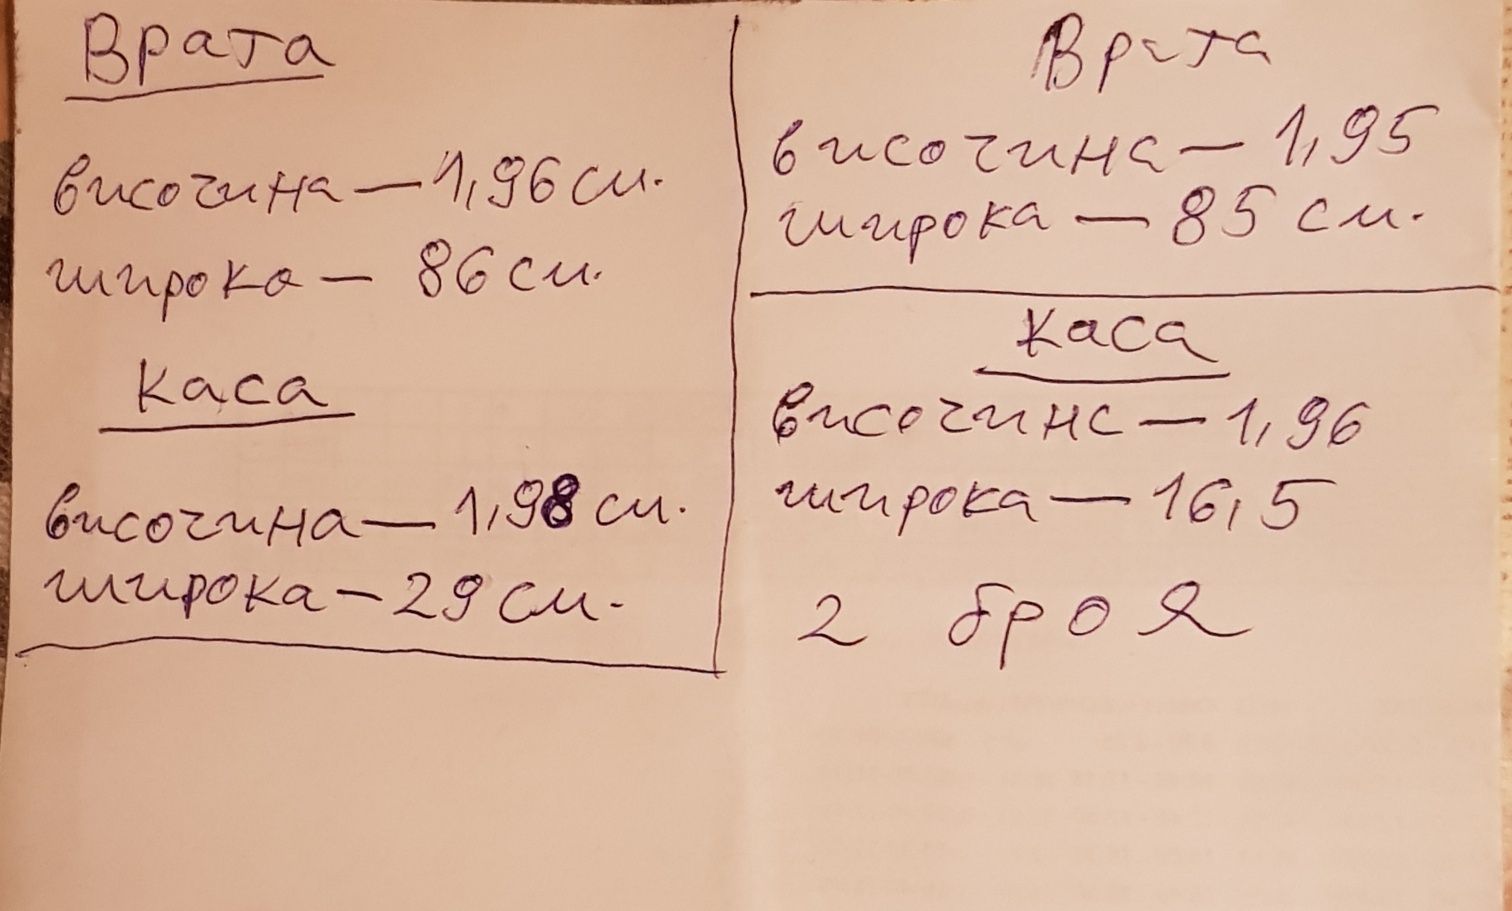 Врата
височина — 1,96 см.
широка — 86 см.
каса
височина — 1,98 см.
широка — 29 см.
Врата
височина — 1,95
широка — 85 см.
каса
височина — 1,96
широка — 16,5
2 броя